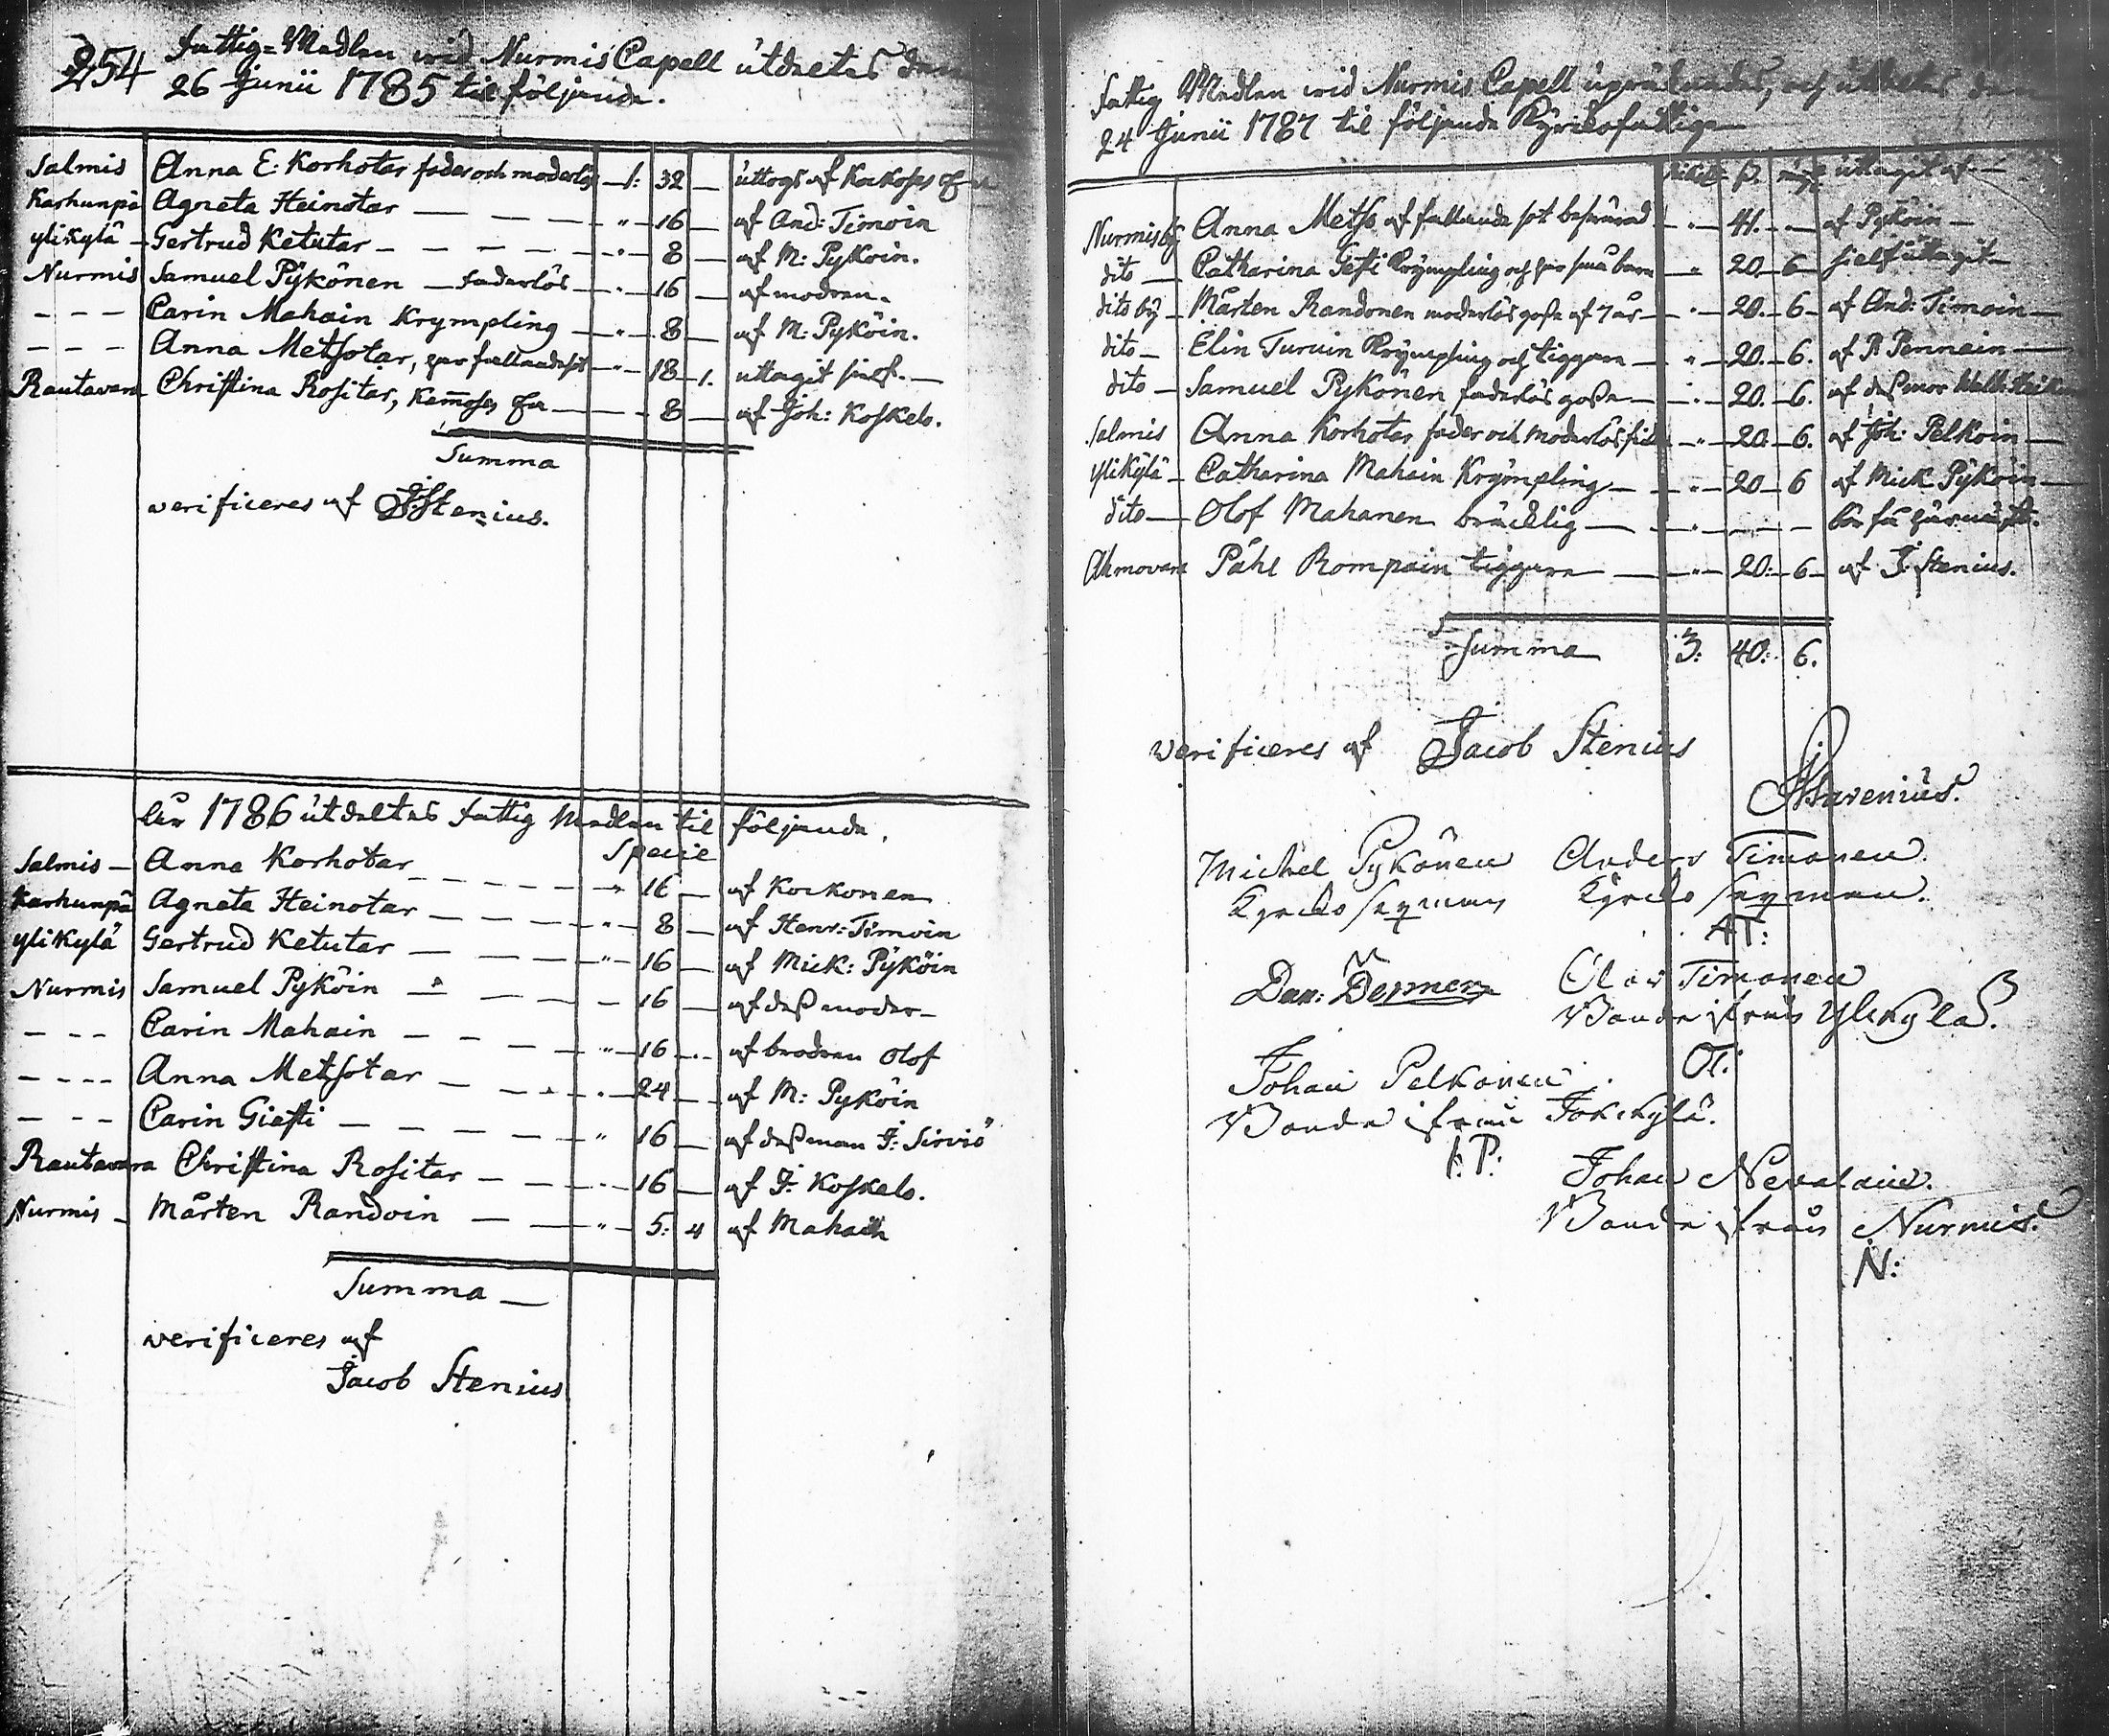 254
Fattig-Medlen wid Nurmis Capell utdeltes den
26 Junii 1785 til följande.
Salmis Anna E: Korhotar fader och moderlös 1: 32 — uttogs af Kockoses
Karhunpä Agneta Heinotar — — — " 16 — af And: Timoin
ylikylä — Gertrud Ketutar — — — — " 8 — af M: Pykoin.
Nurmis Samuel Pÿkönen — faderlös — " 16 — af modren.
— — — Carin Mahain Krympling — " 8 — af M: Pyköin.
— — — Anna Metsotar, har fallandesot — " 18 1. uttagit sielf. —
Rautavara Christina Rositar, — 8 — af Joh: Koskelo.
Summa
verificeres af J: Stenius.
år 1786 utdeltes fattig Medlen til följande.
Specie
Salmis — Anna Korhotar — — — — " 16 — af Kockonen
Karhunpä Agneta Heinotar — — — " 8 — af Henr: Timoin
ylikylä Gertrud Ketutar — — — " 16 — af Mick: Pÿköin
Nurmis Samuel Pyköin — — — 16 — af dess moder —
— — — Carin Mahain — — — " 16 — af brodren Olof
— — — — Anna Metsotar — — — " 24 — af M: Pyköin
— — — Carin Giesti — — — — " 16 — af dess man J: Sirviö
Rautavara Christina Rositar — — — " 16 — af J: Koskelo.
Nurmis — Mårten Randoin — — " 5: 4 af Mahain
Summa —
verificeres af
Jacob Stenius
Fattig Medlen wid Nurmis Capell upräknades, och utdeltes den
24 Junii 1787 til följande Kyrckofattige
uttagit af —
Nurmis by Anna Metso af fallande sot besvärad — " 41. — — af Pyköin —
dito — Catharina Gesti Krÿmpling och har små barn — " 20 — 6 — sielf uttagit —
dito by — Mårten Randonen moderlös gosse af 7 år — " 20. — 6 — af And: Timoin —
dito — Elin Turuin Krÿmpling och tiggare — " 20 — 6. af P Pennain —
dito — Samuel Pykönen faderlös gosse — " 20. 6. af dess mor
Salmis Anna Korhotar fader och moderlös — " 20. 6. af Joh: Pelkoin —
ylikylä — Catharina Mahain Krÿmpling — " 20 — 6 af Mick Pÿköin —
dito — Olof Mahanen bräcklig — " — — —
Ahmovara Påhl Rompain tiggare — " 20: 6 — af J: Stenius.
Summa 3: 40: 6.
verificeres af Jacob Stenius
Michel Pykönen Anders Timonen
Kyrcko Kyrcko
AT:
Olov Timonen
Bonde ifrån Ylikylä.
OT:
Johan Pelkonen
Bonde ifrån
I: P:
Johan Nevalain.
Bonde ifrån Nurmis.
N: